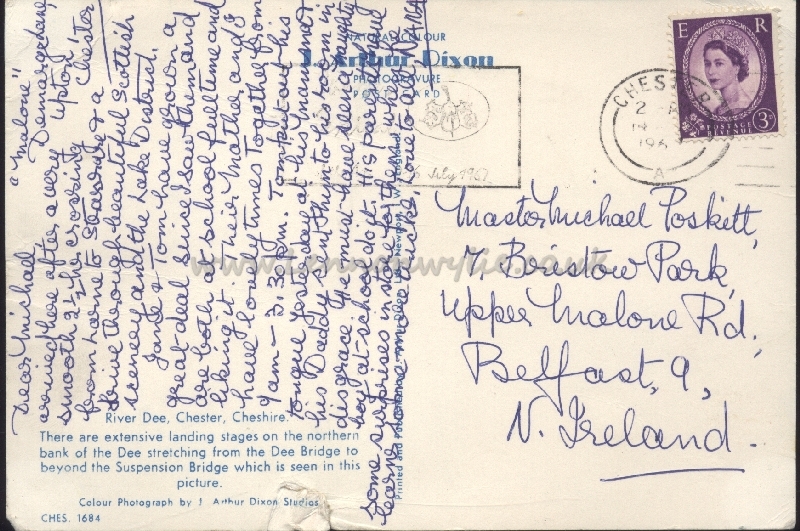 "Malone"
Demage Lane,
Upton,
Chester
Dear Michael
arrived here after a very
smooth 2¼ hr crossing
from Larne to Stranraer & a
drive through beautiful Scottish
scenery and the Lake District.
James & Tom have grown a
great deal since I saw them and
are both at school full time and
liking it. Their Mother and I
have lovely times together from
9am – 3.30pm. Tom put out his
tongue yesterday at his Nanna &
his Daddy sent him to his room in
disgrace. He must have seen a naughty
boy at school do it. His parents
some surprises in store for them when they
learn more tricks. Love to all Nanna
NATURAL COLOUR
J. Arthur Dixon
PHOTOGRAVURE
POST CARD
E R
POSTAGE
REVENUE
3D
CHESTER
A
July 1957
Master Michael Poskitt,
7, Bristow Park,
Upper Malone Rd,
Belfast, 9,
N. Ireland.
www.lennonwylie.co.uk
Printed and Published by J. Arthur Dixon Ltd., Newport, I.W., England
River Dee, Chester, Cheshire.
There are extensive landing stages on the northern
bank of the Dee stretching from the Dee Bridge to
beyond the Suspension Bridge which is seen in this
picture.
Colour Photograph by J. Arthur Dixon Studios
CHES. 1684